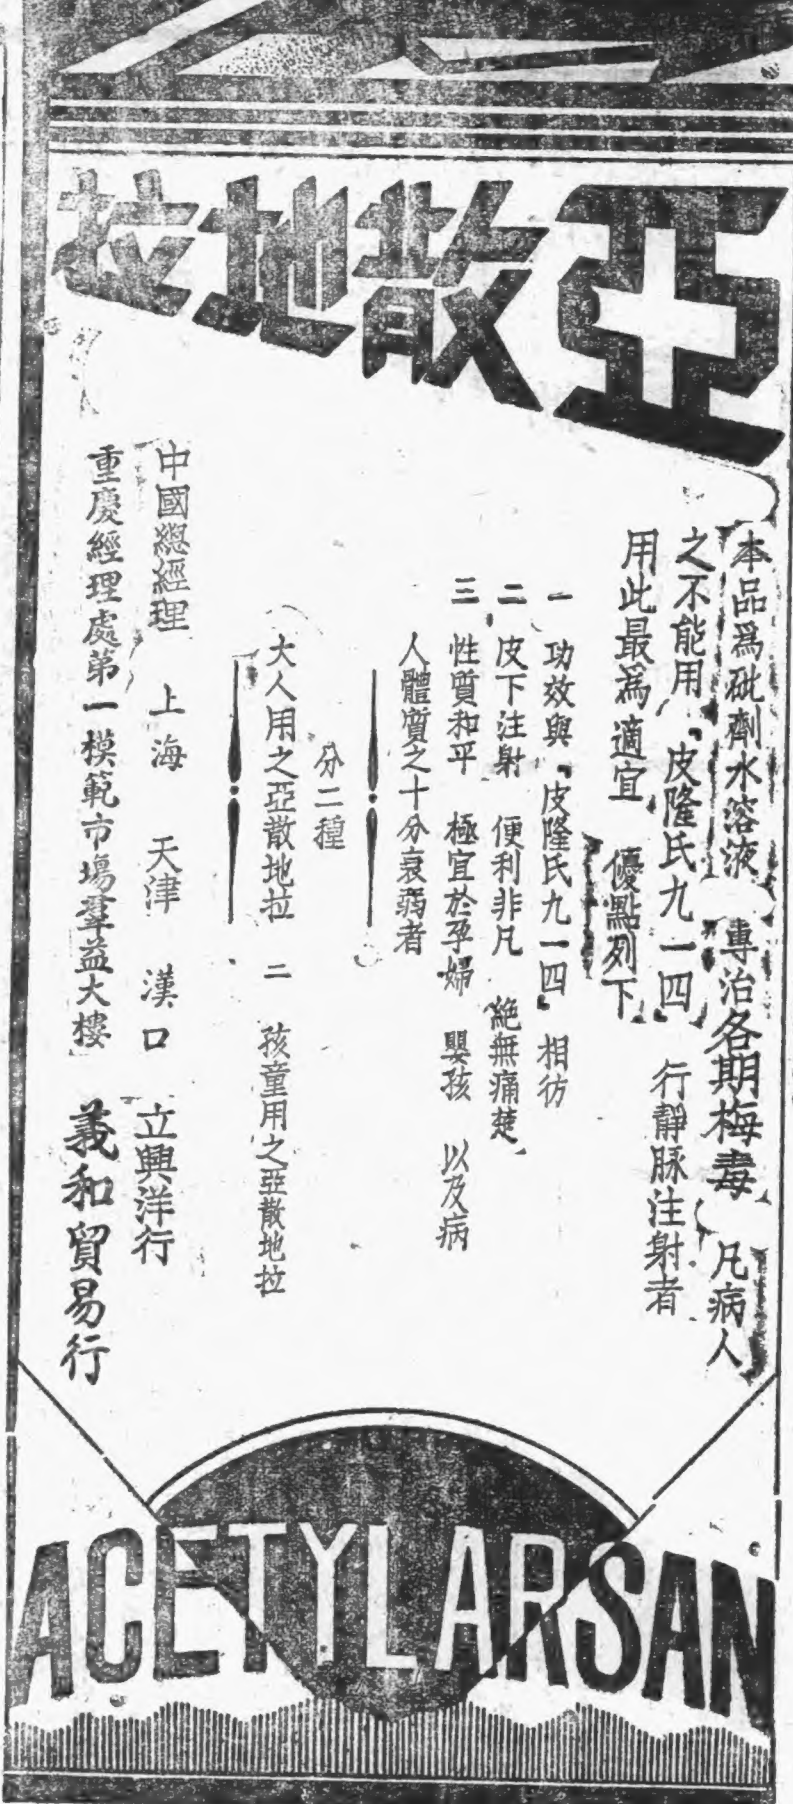 亞散地拉
本品爲砒劑水溶液 專治各期梅毒 凡病人
之不能用『皮隆氏九一四』行靜脉注射者
用此最爲適宜 優點列下
一 功效與『皮隆氏九一四』相彷
二 皮下注射 便利非凡 絶無痛楚
三 性質和平 極宜於孕婦 嬰孩 以及病
人體質之十分衰弱者
分二種
大人用之亞散地拉 二 孩童用之亞散地拉
中國總經理 上海 天津 漢口 立興洋行
重慶經理處第一模範市場羣益大樓 義和貿易行
ACETYLARSAN